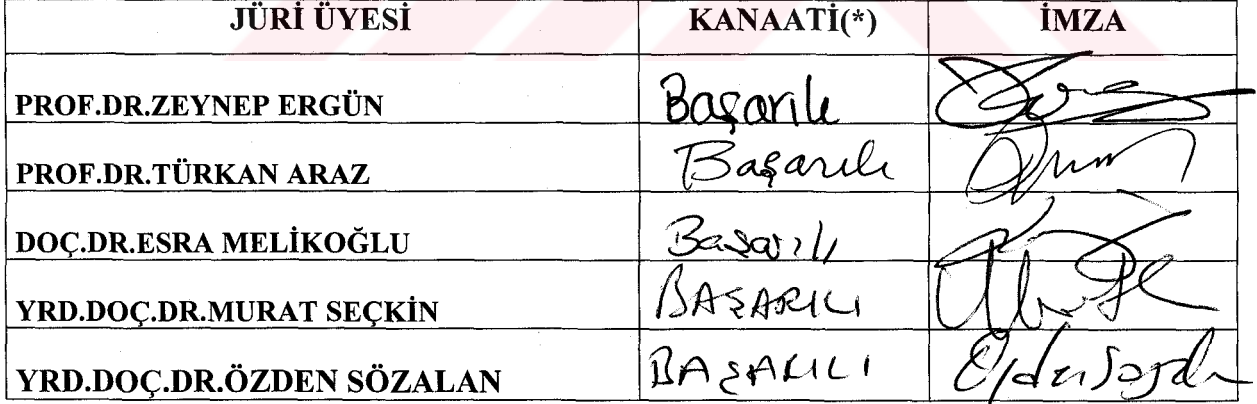 JÜRİ ÜYESİ KANAATİ(*) İMZA
PROF.DR.ZEYNEP ERGÜN Başarılı
PROF.DR.TÜRKAN ARAZ Başarılı
DOÇ.DR.ESRA MELİKOĞLU Başarılı
YRD.DOÇ.DR.MURAT SEÇKİN BAŞARILI
YRD.DOÇ.DR.ÖZDEN SÖZALAN BAŞARILI